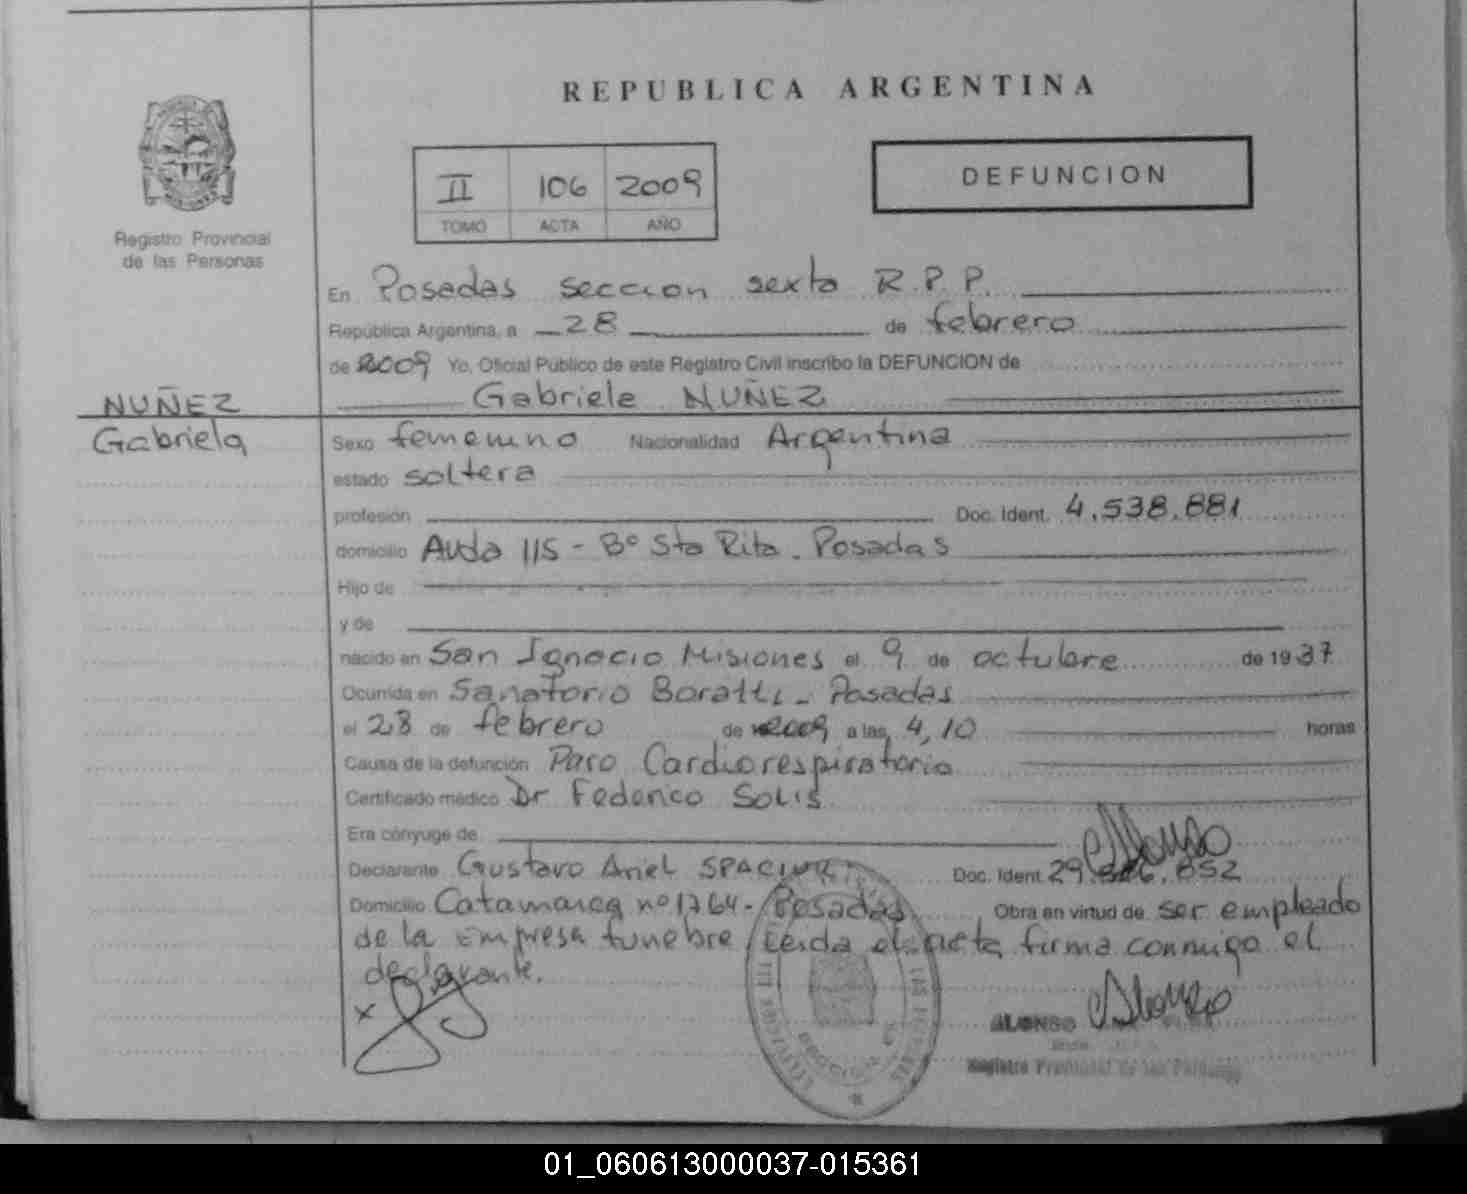 REPUBLICA ARGENTINA
II 106 2009
TOMO ACTA AÑO
DEFUNCION
Registro Provincial
de las Personas
En Posadas seccion sexta R.P.P.
República Argentina, a 28 de febrero
de 2009 Yo, Oficial Público de este Registro Civil inscribo la DEFUNCION de
Gabriela NUÑEZ
NUÑEZ
Gabriela
Sexo femenino Nacionalidad Argentina
estado soltera
profesión Doc. Ident. 4.538.881
domicilio Avda 115 - Bº Sta Rita - Posadas
Hijo de
y de
nacido en San Ignacio Misiones el 9 de octubre de 1937
Ocurrida en Sanatorio Boratti - Posadas
el 28 de febrero de 2009 a las 4,10 horas
Causa de la defunción Paro Cardiorespiratorio
Certificado médico Dr Federico Solis
Era cónyuge de
Declarante Gustavo Ariel Doc. Ident 29. .852
Domicilio Catamarca nº 1764 - Posadas Obra en virtud de ser empleado
de la empresa funebre, Leida el acta firma conmigo el
declarante.
x
ALONSO
Registro Provincial de las Personas
01_060613000037-015361